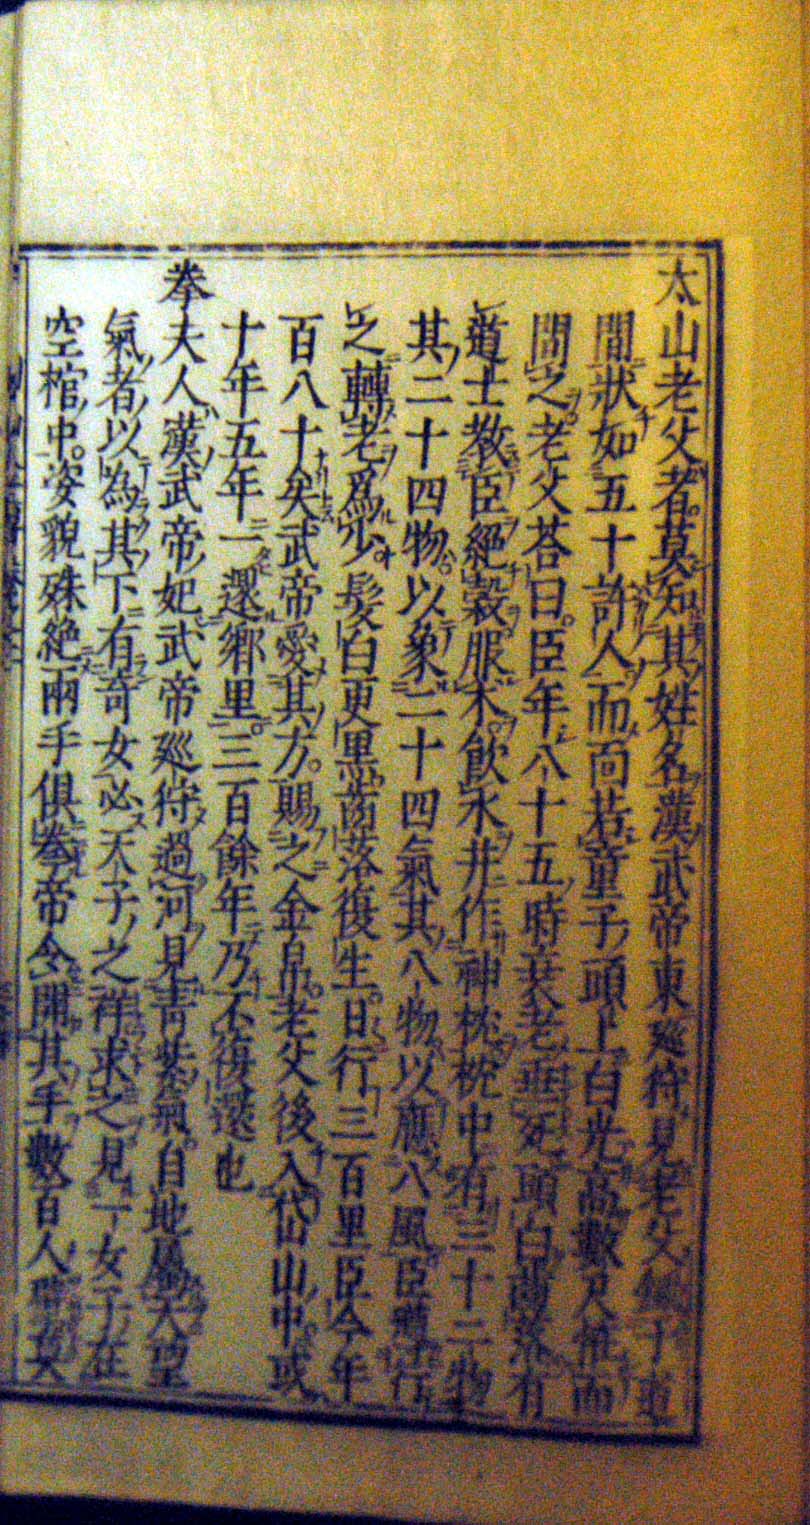 太山老父者莫知其姓名漢武帝東廵狩見老父鋤於道
間狀如五十許人而面若童子頭上白光高數尺怪而
問之老父荅曰臣年八十五時衰老垂死頭白齒落有
道士教臣絕穀服术飲水并作神枕枕中有三十二物
其二十四物以象二十四氣其八物以應八風臣行
之轉老爲少髮白更黒齒落復生日行三百里臣今年
百八十矣武帝愛其方賜之金帛老父後入岱山中或
十年五年一還郷里三百餘年乃不復還也
拳夫人漢武帝妃武帝廵狩過河見青紫氣自地属天望
氣者以為其下有奇女必天子之祥求之見一女子在
空棺中姿貌殊絶兩手俱拳帝令開其手數百人擘莫